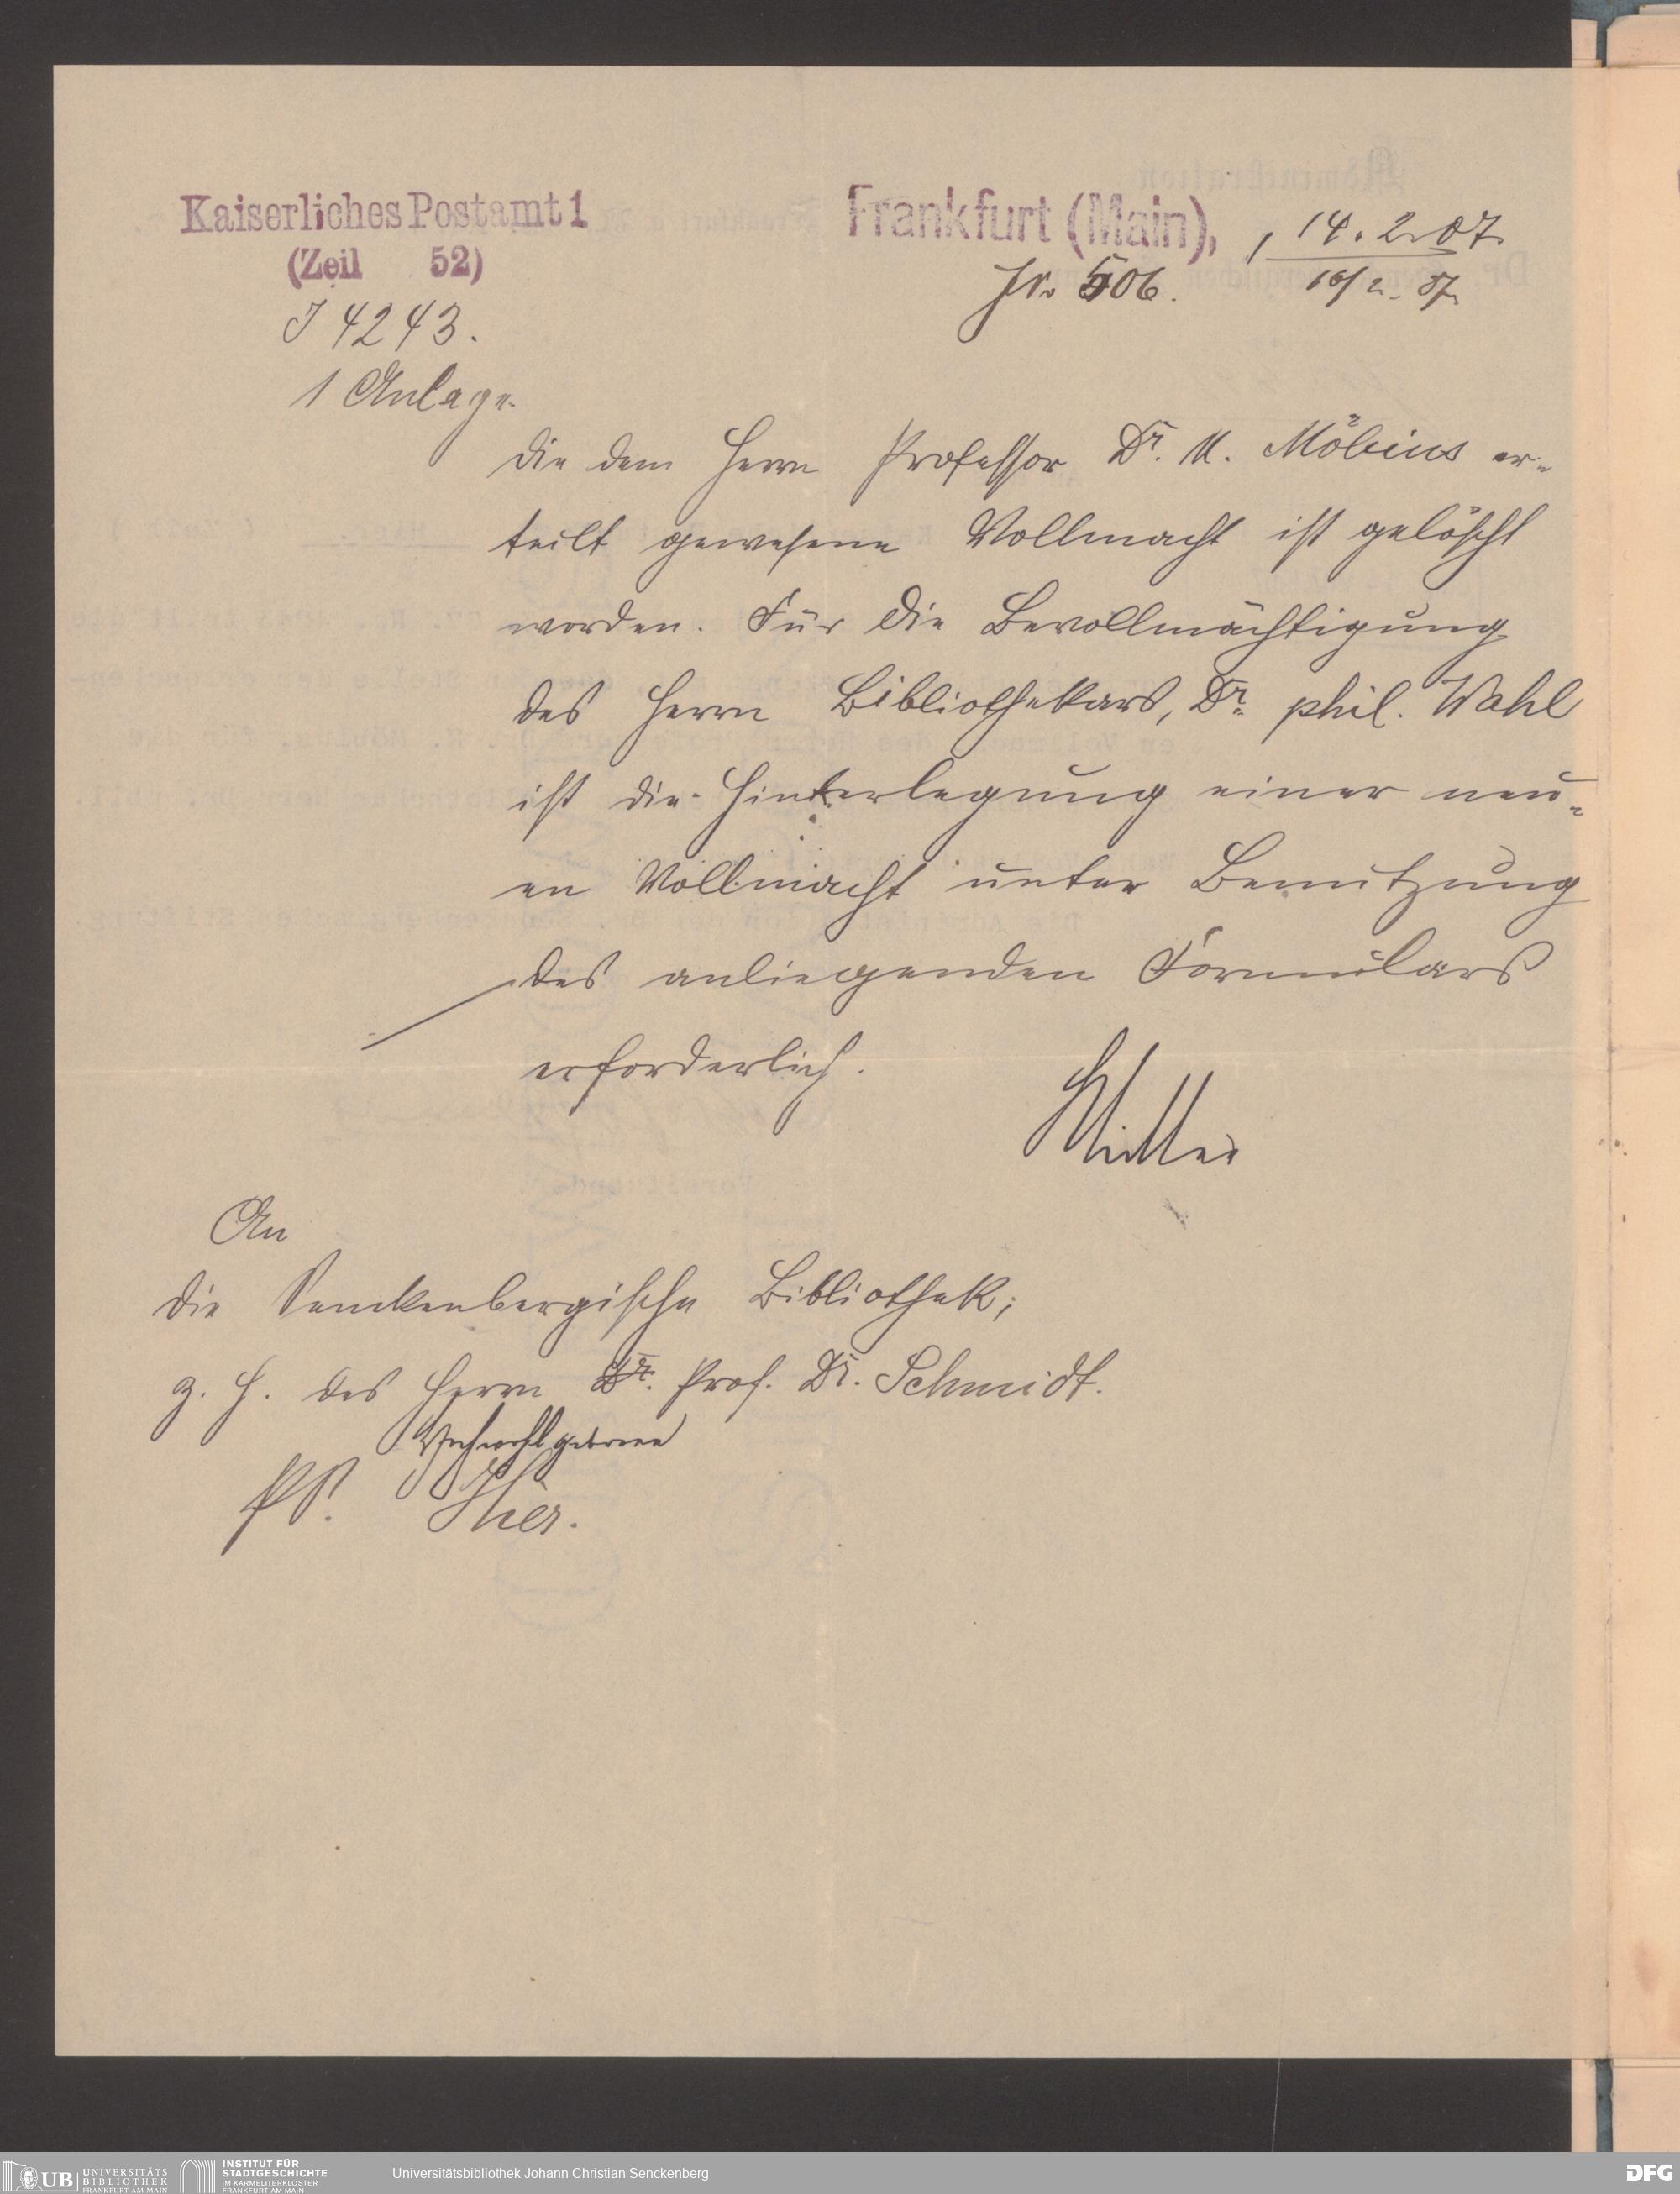 Kaiserliches Postamt 1
(Zeil 52)
Frankfurt (Main), 14. 2. 07.
506.
16/2. 07.
J 4243.
1 Anlage.
Die dem Herrn Professor Dr. M. Möbius er-
teilt gewesene Vollmacht ist gelöscht
worden. Für die Bevollmächtigung
des Herrn Bibliothekars, Dr. phil. Wahl
ist die Hinterlegung einer neu-
en Vollmacht unter Benutzung
des anliegenden Formulars
erforderlich.
An
die Senckenbergische Bibliothek;
z. H. des Herrn Dr. Prof. Dr. Schmidt.
Hochwohlgeboren
PS. Hier.
UB UNIVERSITÄTS
BIBLIOTHEK
FRANKFURT AM MAIN
INSTITUT FÜR
STADTGESCHICHTE
IM KARMELITERKLOSTER
FRANKFURT AM MAIN
Universitätsbibliothek Johann Christian Senckenberg
DFG